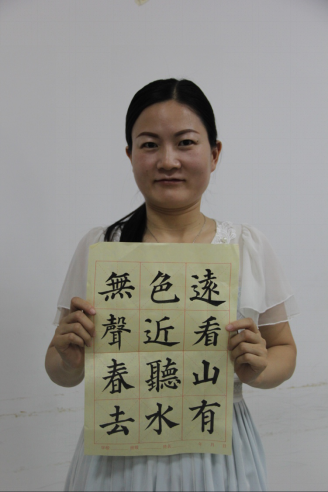 遠看山有
色近聽水
無聲春去